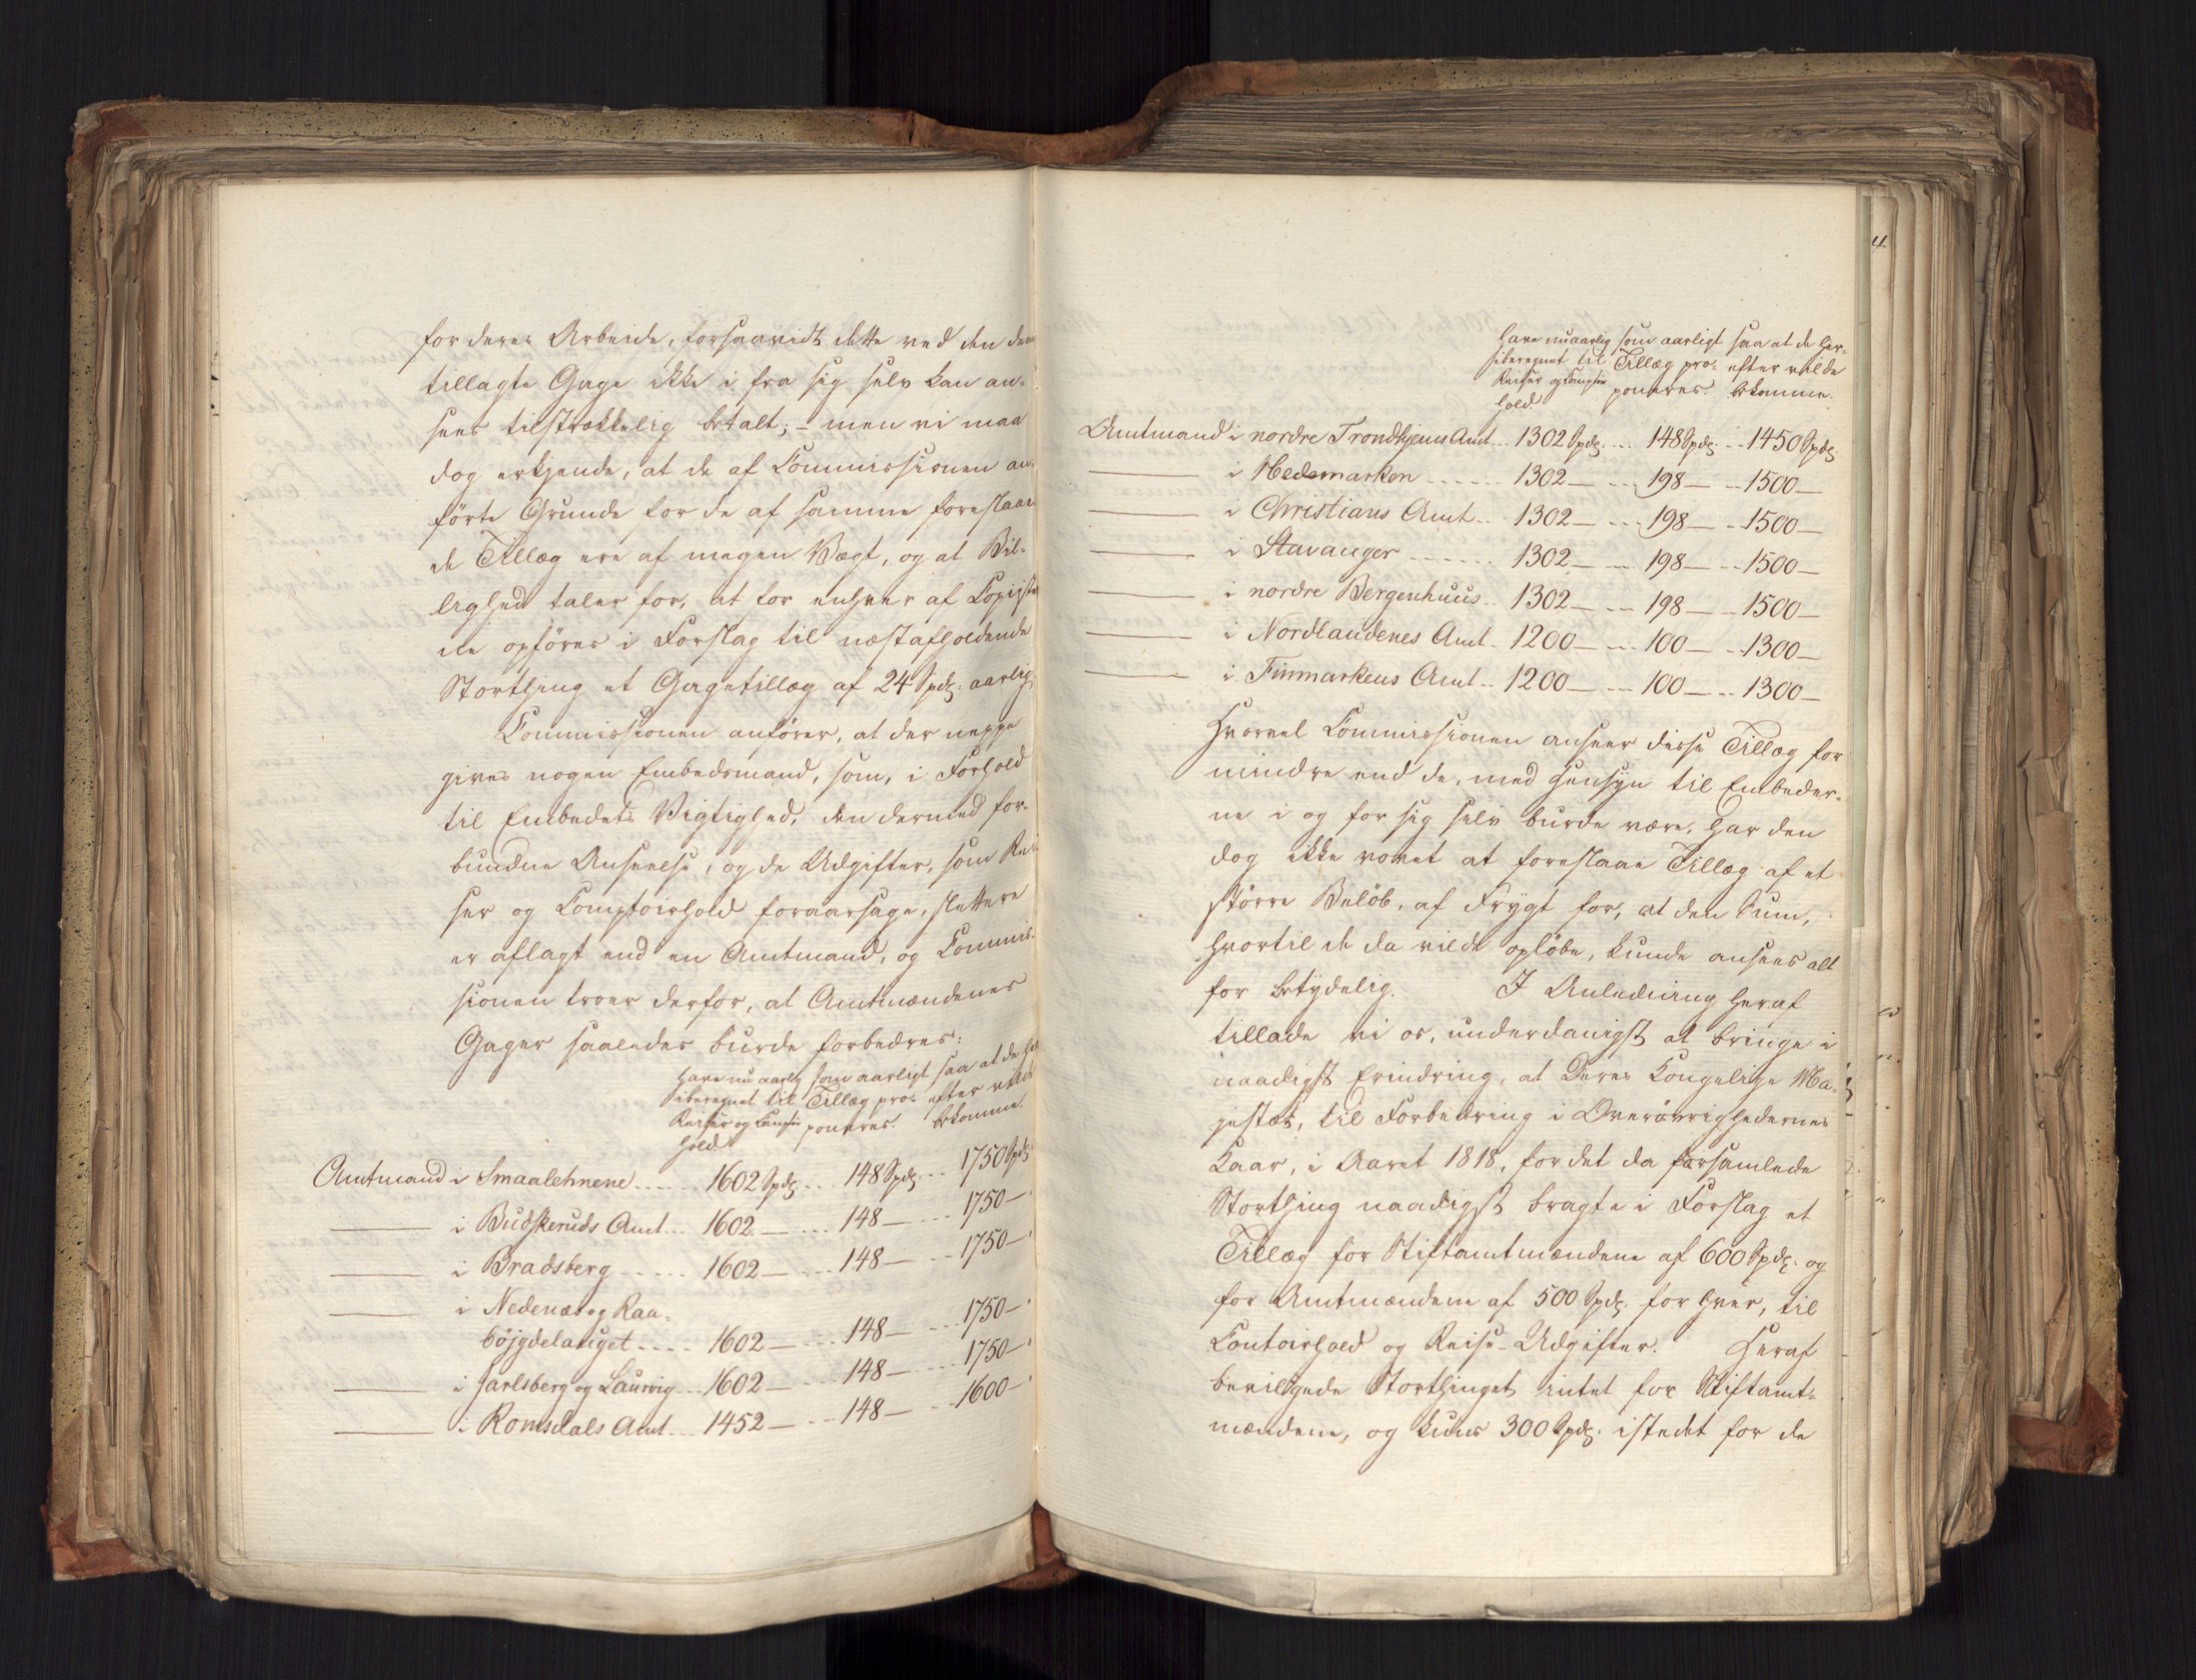 for deres Arbeide, forsaavidt dette ved den dem
tillagte Gage ikke i fra sig selv kan an-
sees tilstrækkelig betalt; - men vi maa
dog erkjende, at de af Commissionen an-
førte Grunde for de af samme foreslaae-
de Tillæg ere af megen Vægt, og at Bil-
lighed taler for, at for enhver af Copiste
ne opføres i Forslag til næstafholdende
Storthing et Gagetillæg af 24 Spd. aarlig.
Commissionen anfører, at der neppe
gives nogen Embedsmand, som, i Forhold
til Embedets Vigtighed, den dermed for-
bundne Anseelse, og de Udgifter, som Rei
ser og Comptoirhold foraarsage, slettere
er aflagt end en Amtmand, og Commis-
sionen troer derfor, at Amtmændenes
Gager saaledes burde forbedres:
Have nu aarlig som aarligt saa at de her
iberegnet til Tillæg pro- efter vilde
Reiser og Comptoir poneres. bekomme.
hold
Amtmand i Smaalehnene ..... 1602 Spd. ... 148 Spd. ... 1750 Spd.
—— i Budskeruds Amt ... 1602 — ... 148 — ... 1750 —
—— i Bradsberg ..... 1602 — ... 148 — ... 1750 —
—— i Nedenæs og Raa-
böjgdelauget .... 1602 — ... 148 — ... 1750 —
—— i Jarlsberg og Laurvig ... 1602 — ... 148 — ... 1750 —
—— i Romsdals Amt ... 1452 — ... 148 — ... 1600 —
4
Have nu aarlig som aarligt saa at de her-
iberegnet til Tillæg pro- efter vilde
Reiser og Comptoir poneres. bekomme.
hold.
Amtmand i nordre Trondhjems Amt .. 1302 Spd. ... 148 Spd. ... 1450 Spd.
—— i Hedemarken ...... 1302 — ... 198 — ... 1500 —
—— i Christians Amt .. 1302 — ... 198 — .. 1500 —
—— i Stavanger ...... 1302 — ... 198 — ... 1500 —
—— i nordre Bergenhuus .. 1302 — ... 198 — .. 1500 —
—— i Nordlandenes Amt . 1200 — ... 100 — .. 1300 —
—— i Finmarkens Amt .. 1200 — ... 100 — .. 1300 —
Hvorvel Commissionen anseer disse Tillæg for
mindre end de, med Hensyn til Embeder-
ne i og for sig selv burde være, har den
dog ikke vovet at foreslaae Tillæg af et
större Beløb, af Frygt for, at den Sum,
hvortil de da vilde opløbe, kunde ansees alt
for betydelig. I Anledning heraf
tillade vi os, underdanigst at bringe i
naadigst Erindring, at Deres Kongelige Ma-
jestæt, til Forbedring i Overøvrighedernes
Kaar, i Aaret 1818, for det da forsamlede
Storthing naadigst bragte i Forslag et
Tillæg for Stiftamtmændene af 600 Spd. og
for Amtmændene af 500 Spd. for hver, til
Contoirhold og Reise-Udgifter. Heraf
bevilgede Storthinget intet for Stiftamt-
mændene, og kuns 300 Spd. istedet for de